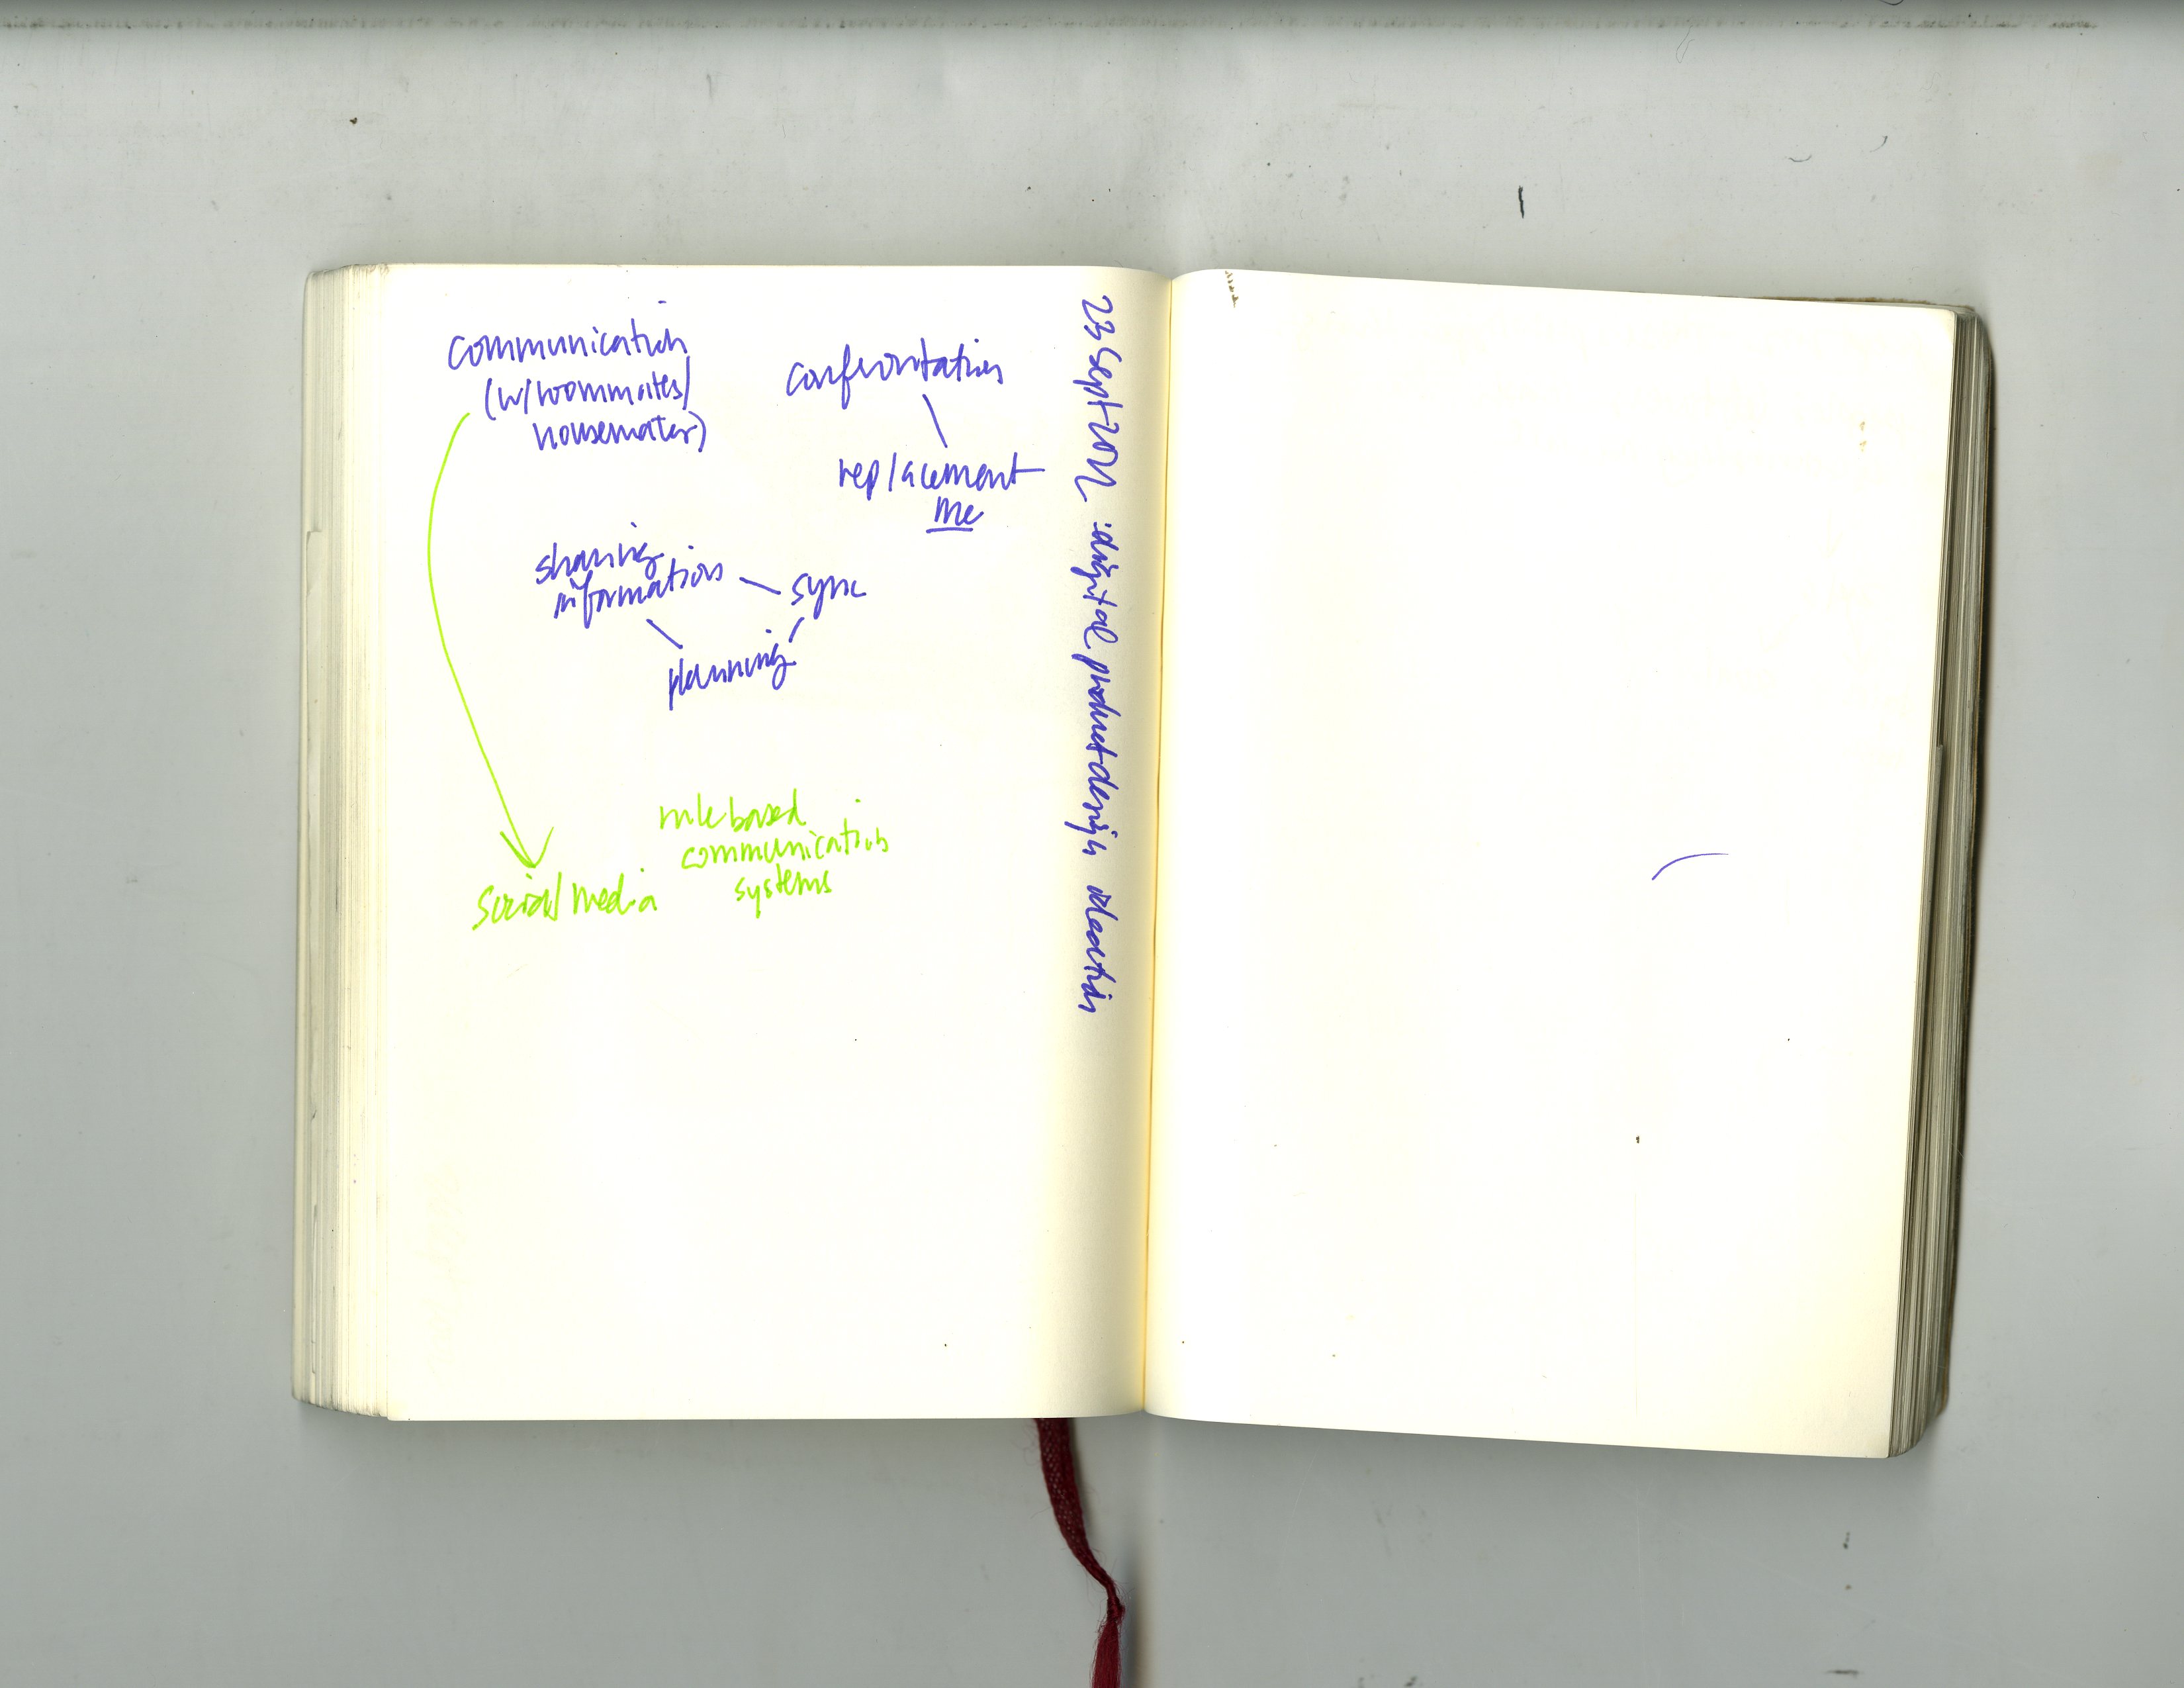 communication
(w/roommates/
housemates)
confrontation
replacement
me
sharing
information
sync
planning
rule based
communication
systems
social media
23 Sept : digital product design ideation